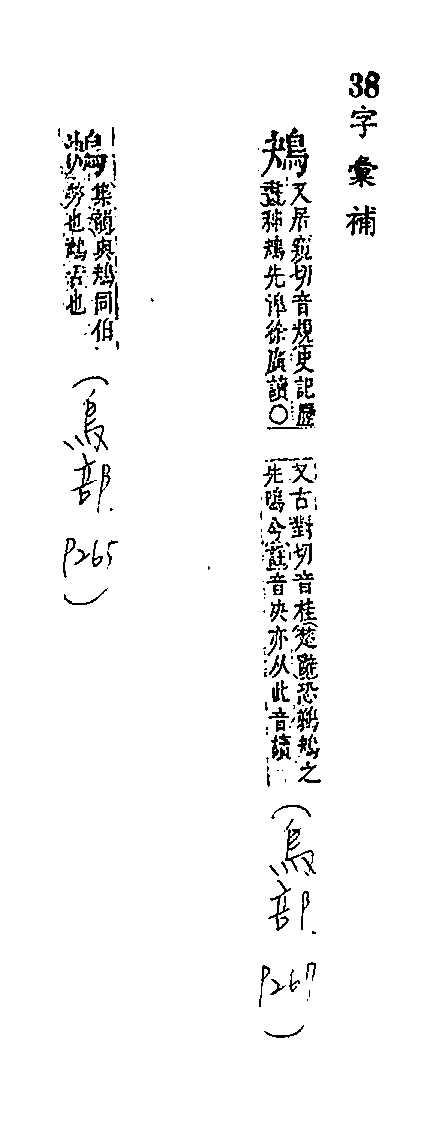 38字彙補
鳺
又居窺切音規史記歷
書秭鳺先滜徐廣讀〇
又古對切音桂楚騷恐鵜鳺之
先鳴今註音決亦从此音讀
(鳥部. P267)
集韻與鴂同伯
勞也鴂舌也
(鳥部. P265)